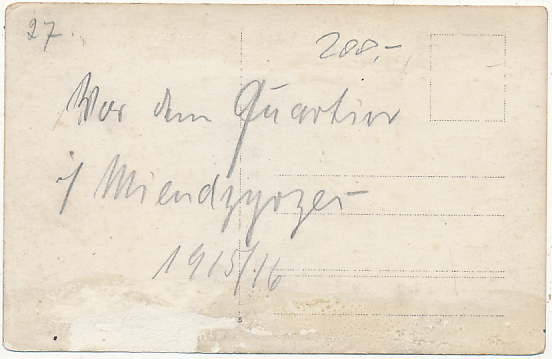 27.
200,-
Vor dem Quartier
i/ Miendzyrzec
1915/16